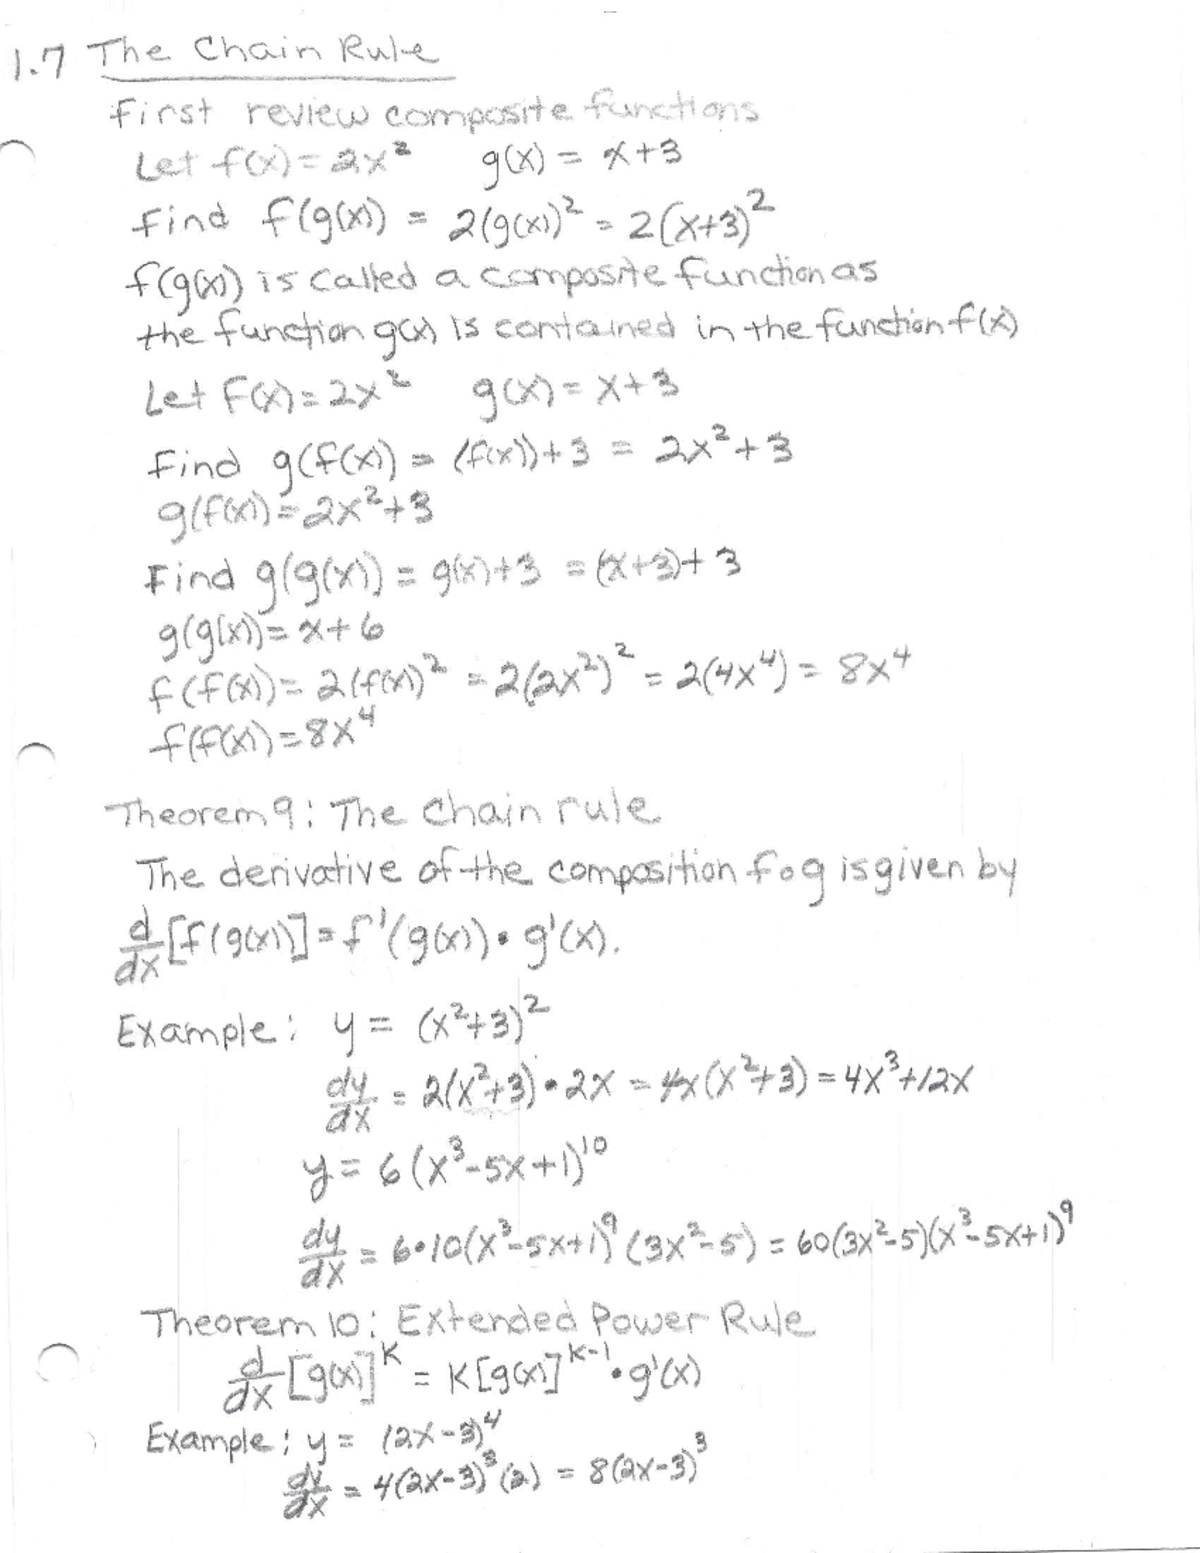 1.7 The Chain Rule
First review composite functions
Let f(x) = 2x² g(x) = x+3
Find f(g(x)) = 2(g(x))² = 2(x+3)²
f(g(x)) is called a composite function as
the function g(x) is contained in the function f(x)
Let f(x) = 2x² g(x) = x+3
Find g(f(x)) = (f(x))+3 = 2x²+3
g(f(x)) = 2x²+3
Find g(g(x)) = g(x)+3 = (x+3)+3
g(g(x)) = x+6
f(f(x)) = 2(f(x))² = 2(2x²)² = 2(4x⁴) = 8x⁴
f(f(x)) = 8x⁴
Theorem 9: The Chain rule
The derivative of the composition f∘g is given by
d/dx [f(g(x))] = f'(g(x)) • g'(x).
Example: y = (x²+3)²
dy/dx = 2(x²+3) • 2x = 4x(x²+3) = 4x³+12x
y = 6(x³-5x+1)¹⁰
dy/dx = 6•10(x³-5x+1)⁹(3x²-5) = 60(3x²-5)(x³-5x+1)⁹
Theorem 10: Extended Power Rule
d/dx [g(x)]ᴷ = K[g(x)]ᴷ⁻¹ • g'(x)
Example: y = (2x-3)⁴
dy/dx = 4(2x-3)³(2) = 8(2x-3)³